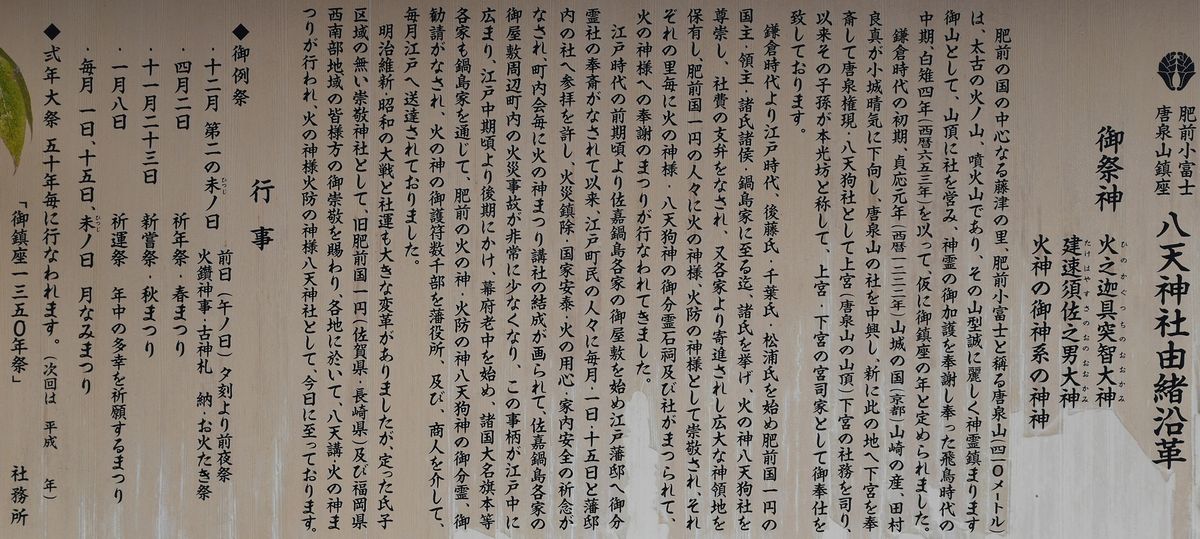 肥前小富士
唐泉山鎮座
八天神社由緒沿革
御祭神
火之迦具突智大神
ひのかぐつちのおおかみ
建速須佐之男大神
たけはやすさのおのおおかみ
火神の御神系の神神
肥前の国の中心なる藤津の里、肥前小富士と稱る唐泉山(四一〇メートル)
は、太古の火ノ山、噴火山であり、その山型誠に麗しく神霊鎮まります
御山として、山頂に社を営み、神霊の御加護を奉謝し奉った飛鳥時代の
中期・白雉四年(西暦六五三年)を以って、仮に御鎮座の年と定められました。
鎌倉時代の初期、貞応元年(西暦一二二二年)山城の国(京都)山崎の産、田村
良真が小城晴気に下向し、唐泉山の社を中興し、新に此の地へ下宮を奉
斎して唐泉権現・八天狗社として上宮(唐泉山の山頂)下宮の社務を司り、
以来その子孫が本光坊と称して、上宮・下宮の宮司家として御奉仕を
致しております。
鎌倉時代より江戸時代、後藤氏・千葉氏・松浦氏を始め肥前国一円の
国主・領主・諸氏諸侯・鍋島家に至る迄、諸氏を挙げ、火の神八天狗社を
尊崇し、社費の支弁をなされ、又各家より寄進されし広大な神領地を
保有し、肥前国一円の人々に火の神様、火防の神様として崇敬され、それ
ぞれの里毎に火の神様・八天狗神の御分霊石祠及び社がまつられて、
火の神様への奉謝のまつりが行なわれてきました。
江戸時代の前期頃より佐嘉鍋島各家の御屋敷を始め江戸藩邸へ御分
霊社の奉斎がなされて以来、江戸町民の人々に毎月・一日・十五日と藩邸
内の社へ参拝を許し、火災鎮除・国家安泰・火の用心・家内安全の祈念が
なされ、町内会毎に火の神まつり講社の結成が画られて、佐嘉鍋島各家の
御屋敷周辺町内の火災事故が非常に少なくなり、この事柄が江戸中に
広まり、江戸中期頃より後期にかけ、幕府老中を始め、諸国大名旗本等
各家も鍋島家を通じて、肥前の火の神・火防の神八天狗神の御分霊、御
勧請がなされ、火の神の御護符数千部を藩役所、及び、商人を介して、
毎月江戸へ送達されておりました。
明治維新・昭和の大戦と社運も大きな変革がありましたが、定った氏子
区域の無い崇敬神社として、旧肥前国一円(佐賀県・長崎県)及び福岡県
西南部地域の皆様方の御崇敬を賜わり、各地に於いて、八天講・火の神ま
つりが行われ、火の神様火防の神様八天神社として、今日に至っております。
行事
◆御例祭
・十二月 第二の未ノ日 前日(午ノ日)夕刻より前夜祭
ひつじ
火鑽神事・古神札 納・お火たき祭
・四月二日 祈年祭・春まつり
・十一月二十三日 新嘗祭・秋まつり
・一月八日 祈運祭 年中の多幸を祈願するまつり
・毎月 一日、十五日、未ノ日 月なみまつり
ひつじ
◆弐年大祭 五十年毎に行なわれます。(次回は 平成 年)
「御鎮座一三五〇年祭」
社務所